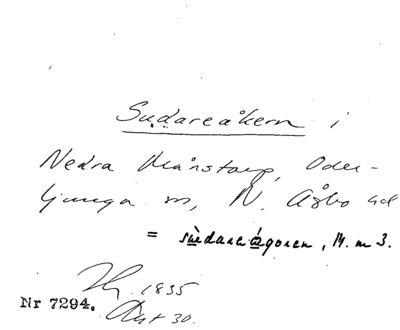 Sudareåkern i
Nedra Månstorp, Oder-
ljunga sn, N. Åsbo hd
= sùdaraágoren, 14. m 3.
1835
Nr 7294. 30.